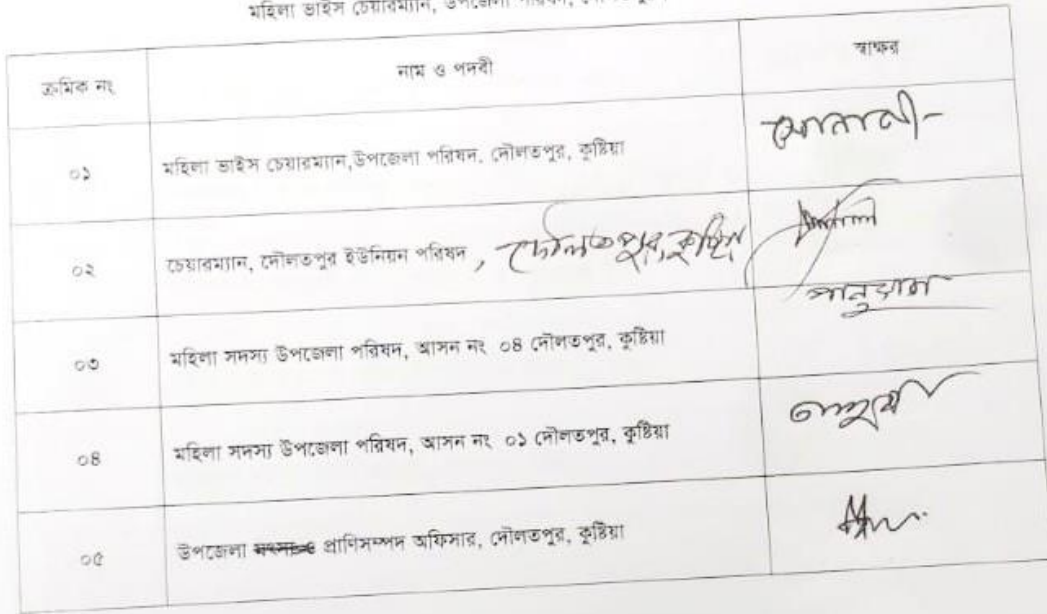 মহিলা ভাইস চেয়ারম্যান, উপজেলা পরিষদ,
ক্রমিক নং নাম ও পদবী স্বাক্ষর
০১ মহিলা ভাইস চেয়ারম্যান,উপজেলা পরিষদ, দৌলতপুর, কুষ্টিয়া
০২ চেয়ারম্যান, দৌলতপুর ইউনিয়ন পরিষদ , দৌলতপুর, কুষ্টিয়া
০৩ মহিলা সদস্য উপজেলা পরিষদ, আসন নং ০৪ দৌলতপুর, কুষ্টিয়া
০৪ মহিলা সদস্য উপজেলা পরিষদ, আসন নং ০১ দৌলতপুর, কুষ্টিয়া
০৫ উপজেলা প্রাণিসম্পদ অফিসার, দৌলতপুর, কুষ্টিয়া